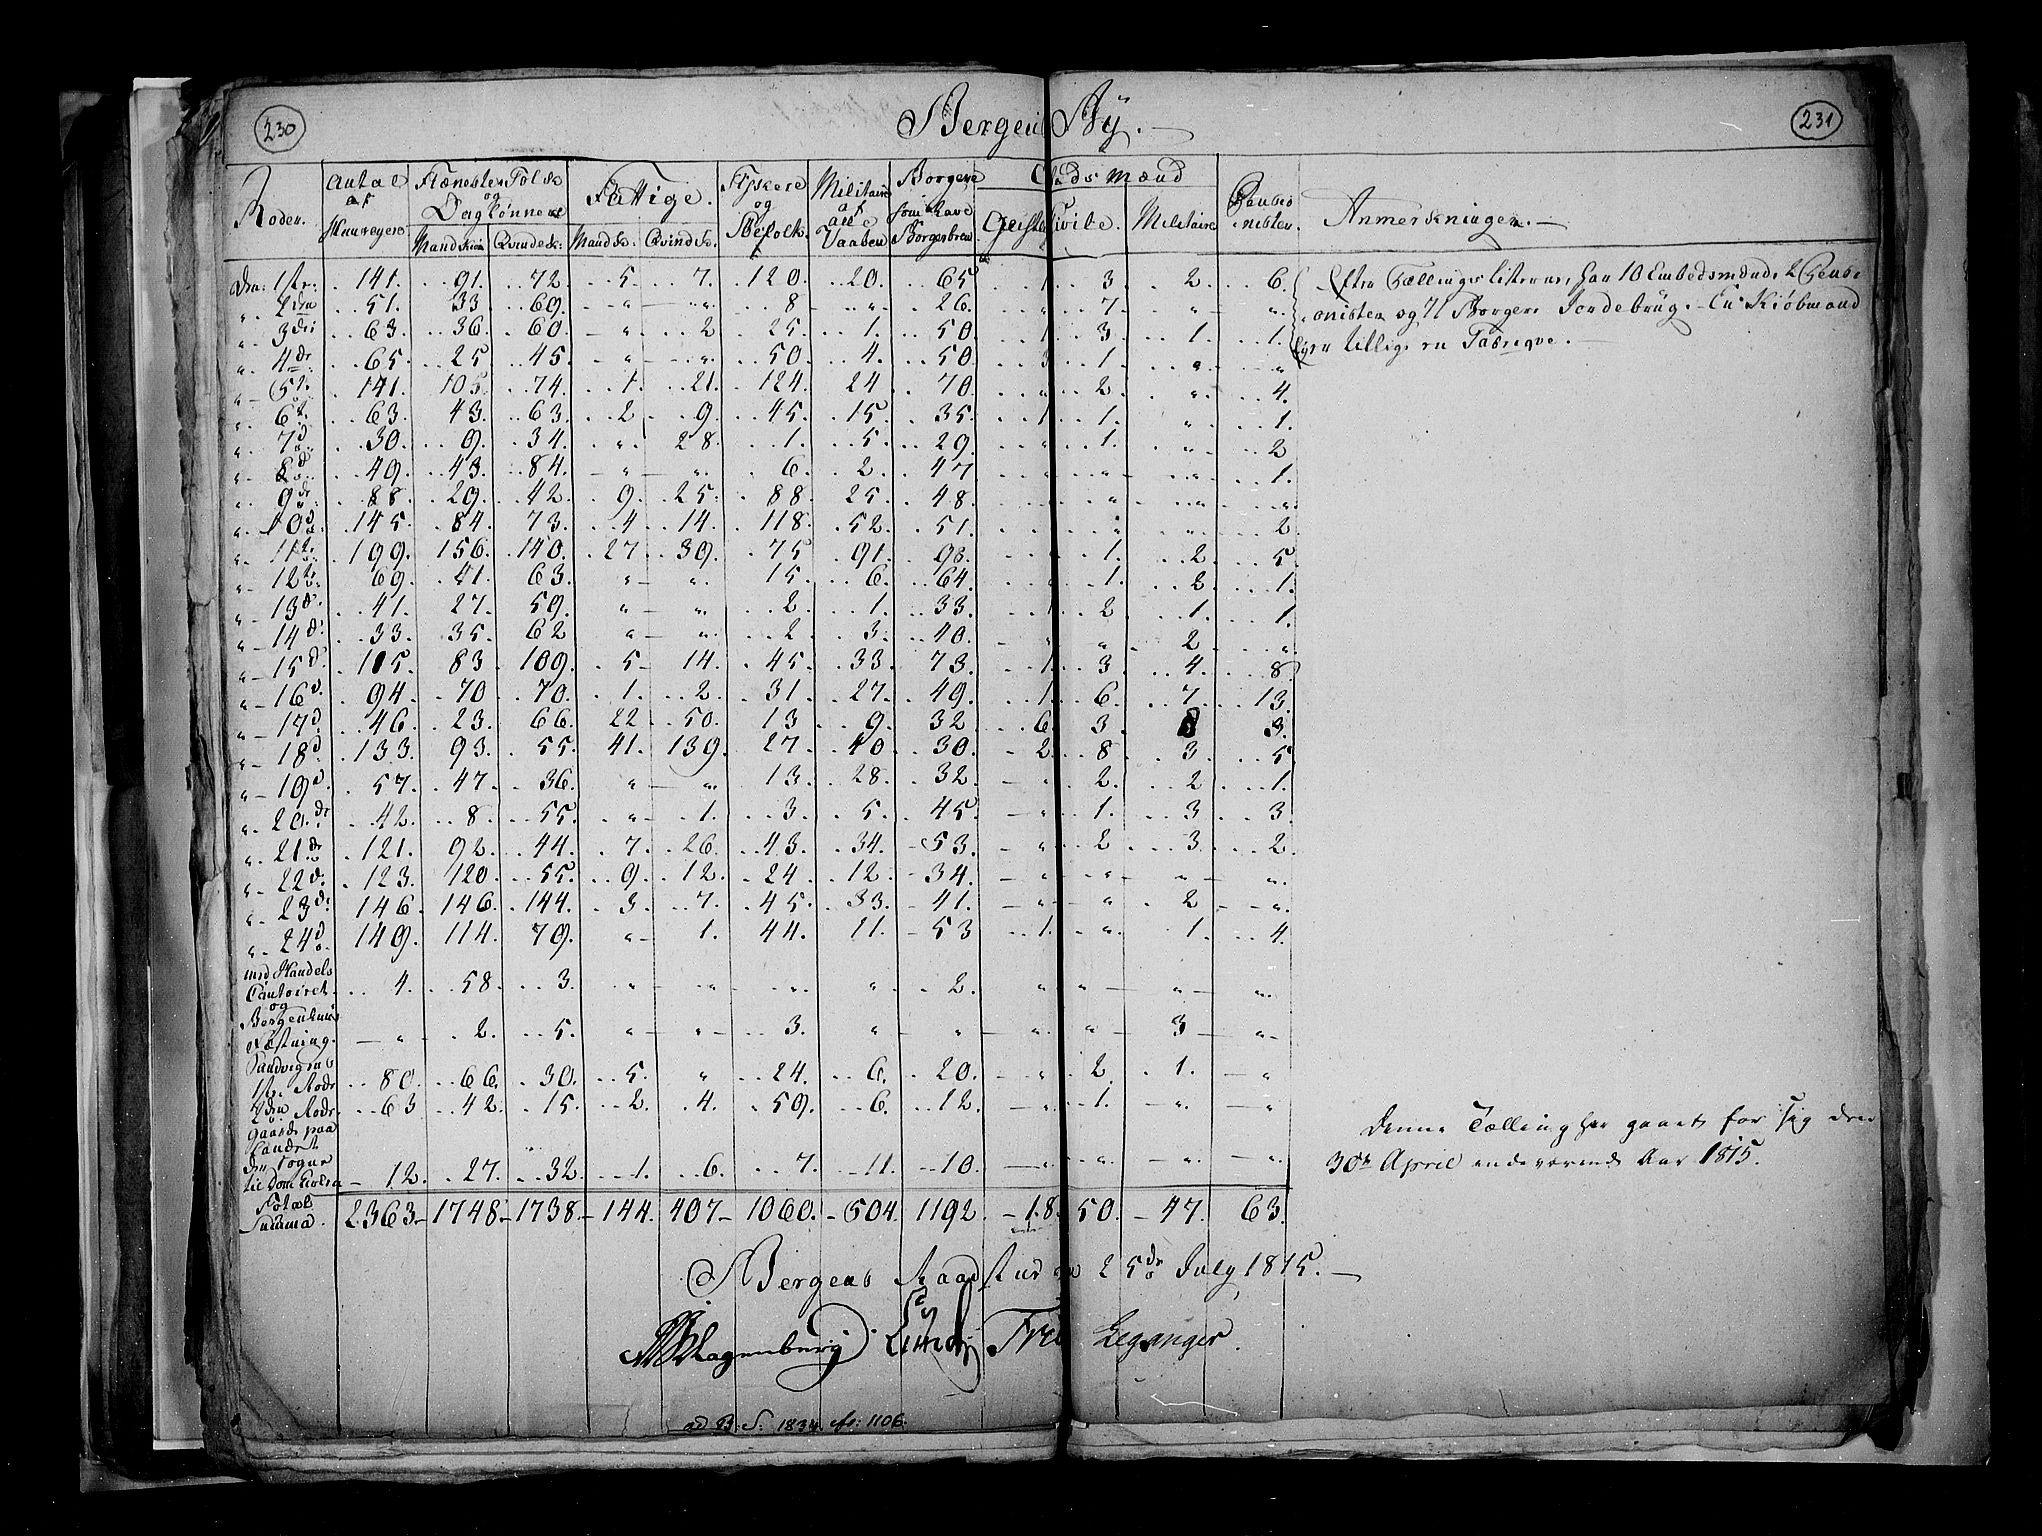 230
Bergens By.
231
Roder.
Antal af Huuseyere
Tieneste Folk og Dagløннere
Mandskiøn
Qvindesk:
Fattige.
Mandsk:
Qvindsk:
Fiskere og Søefolk
Militaire af alle Vaaben
Borgere som have Borgerbrev
Embedsmænd
Geistl
Civile.
Militaire
Pensionister.
Anmerkninger.
Den 1ste: 141. 91. 72. 5. 7. 120. 20. 65 1. 3. 2. 6.
" 2den 51. 33 69. " " 8 " 26. " 7. " "
" 3die 63. 36. 60. " 2 25. 1. 50. 1 3. 1. 1.
" 4de 65. 25 45. " " 50. 4. 50. 3 1. " "
" 5te 141. 105. 74. 1. 21. 124. 24 70 " 2. " 4.
" 6te 63. 43. 63. 2. 9. 45. 15. 35. 1 1. " 1.
" 7d 30. 9. 34. " 28. 1. 5. 29. " 1. " 2
" 8d 49. 43. 84. " " 6. 2. 47 " " " 1.
" 9de 88. 29. 42. 9. 25. 88. 25. 48. " " "
" 10d 145. 84. 73. 4 14. 118. 52. 51. " " 2.
" 11te 199. 156. 140. 27 39. 75 91. 98. " 1. 2. 5.
" 12te 69. 41. 63. " " 15. 6. 64 " 1. 2 1.
" 13d. 41. 27. 59. " " 2. 1. 33. 1 2 1. 1.
" 14d. 33. 35. 62 " " 2. 3. 40. " " 2 "
" 15d. 105. 83. 109. 5 14. 45. 33. 73. 1. 3. 4. 8.
" 16d. 94. 70 70. 1. 2. 31. 27. 49. 1. 6. 7. 13.
" 17d 46. 23. 66. 22 50. 13 9. 32 6. 3. 3.
" 18d 133. 93. 55. 41. 139. 27. 40 30. 2. 8. 3. 5.
" 19d. 57. 47. 36. " " 13. 28. 32. " 2. 2 1.
" 20.de 42. 8. 55. " 1. 3. 5. 45. " 1. 3 3.
" 21de 121. 92. 44. 7. 26. 43. 34. 53. " 2 3. 2.
" 22d. 123. 120. 55. 9. 12. 24 12. 34. " " " "
" 23d. 146. 146. 144. 3. 7. 45. 33. 41. " " 2 "
" 24d 149. 114. 79. " 1. 44. 11. 53 1. " 1. 4.
med Handels
Contoiret. 4. 58. 3. " " " " 2. " " " "
og
Bergenhuus
Fæstning. " 2. 5. " " 3. " " " " 3 "
Sandvigens
1ste Rode 80. 66. 30. 5. " 24. 6. 20. " 2. 1. "
2den Rode. 63 42. 15. 2. 4. 59. 6. 12. " 1. " "
Gaarde paa
Landet
den Sogne
til Domkirken 12. 27. 32. 1. 6. 7. 11. 10. " " " "
Total
Summa. 2363 1748 1738 144. 407 1060. 504. 1192 18 50. 47. 63.
Efter Tællingslisterne, har 10 Embedsmænd, 2 Pensi-
onister og 71 Borgere Jordebrug. En Kiøbmand
Eyer tillige en Fabrique.
Denne Tælling har gaaet for sig den
30te April indeværende Aar 1815.
Bergens Raadstue den 25de July 1815.
Klagenberg Lundh Fre Leganger.
ad B: S: 1834 No: 1106.